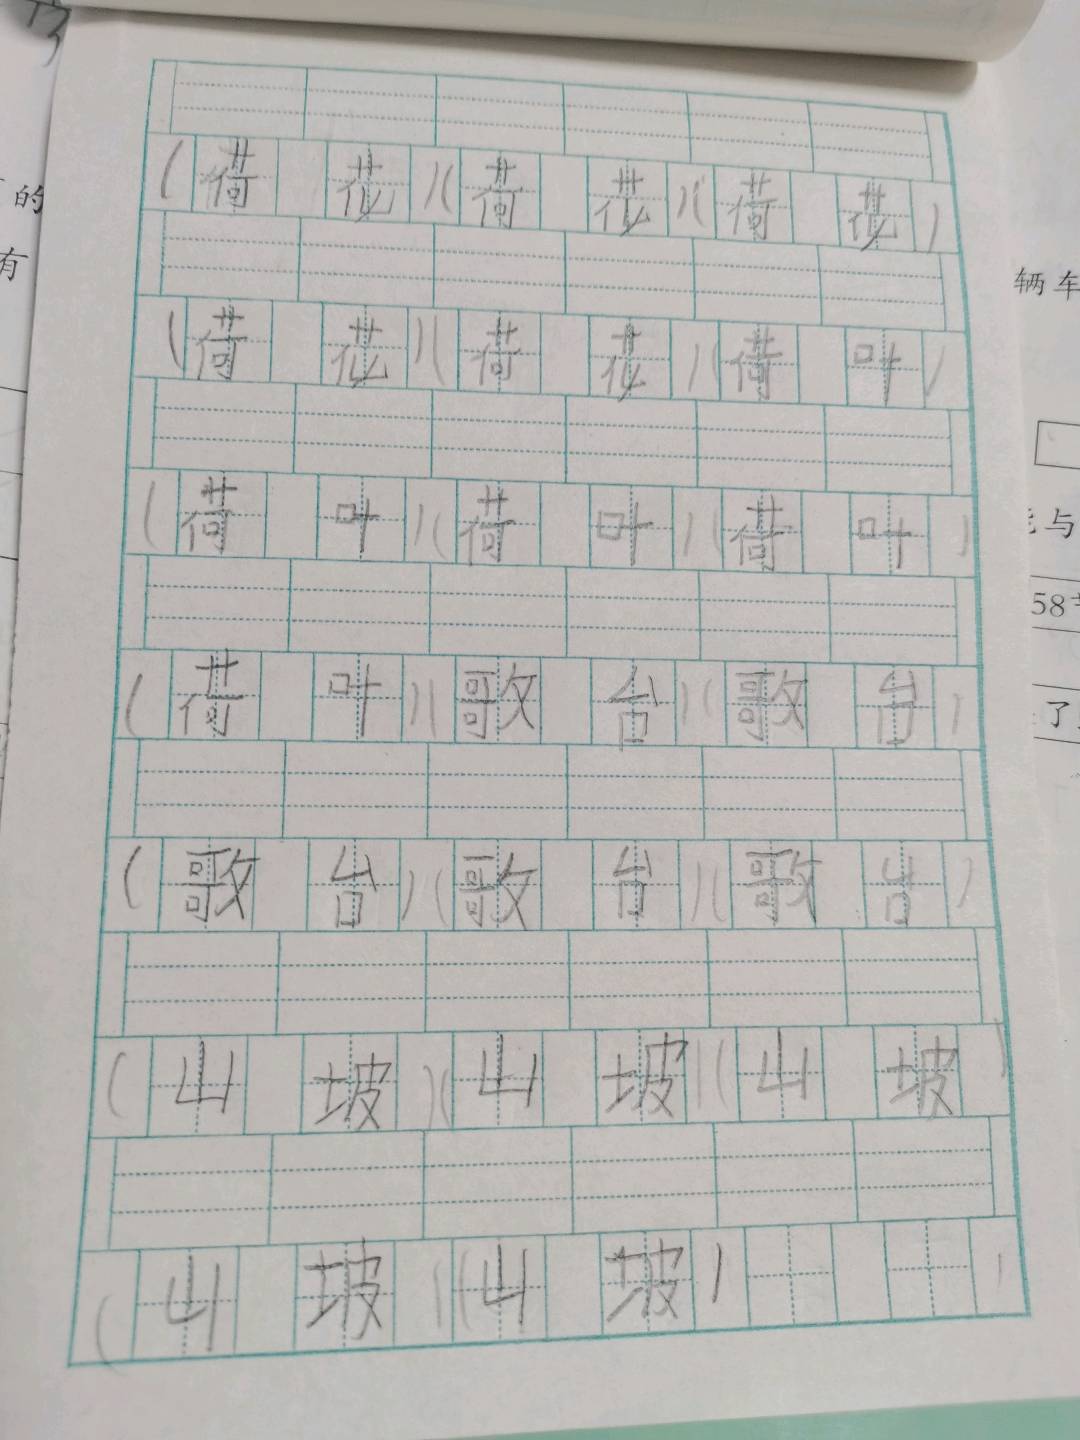 的
有
(荷 花)(荷 花)(荷 花)
(荷 花)(荷 花)(荷 叶)
(荷 叶)(荷 叶)(荷 叶)
(荷 叶)(歌 台)(歌 台)
(歌 台)(歌 台)(歌 台)
(山 坡)(山 坡)(山 坡)
(山 坡)(山 坡)
辆车
与
58
了